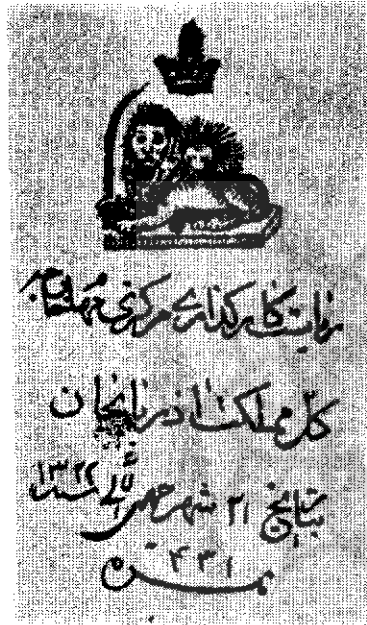 ریاست کارگذاری مرکزی مهام خارجه
کل مملکت اذربایجان
بتاریخ ۲۱ شهر جمیـ الثانی سنه ۱۳۲۲
نمره ۴۳۱